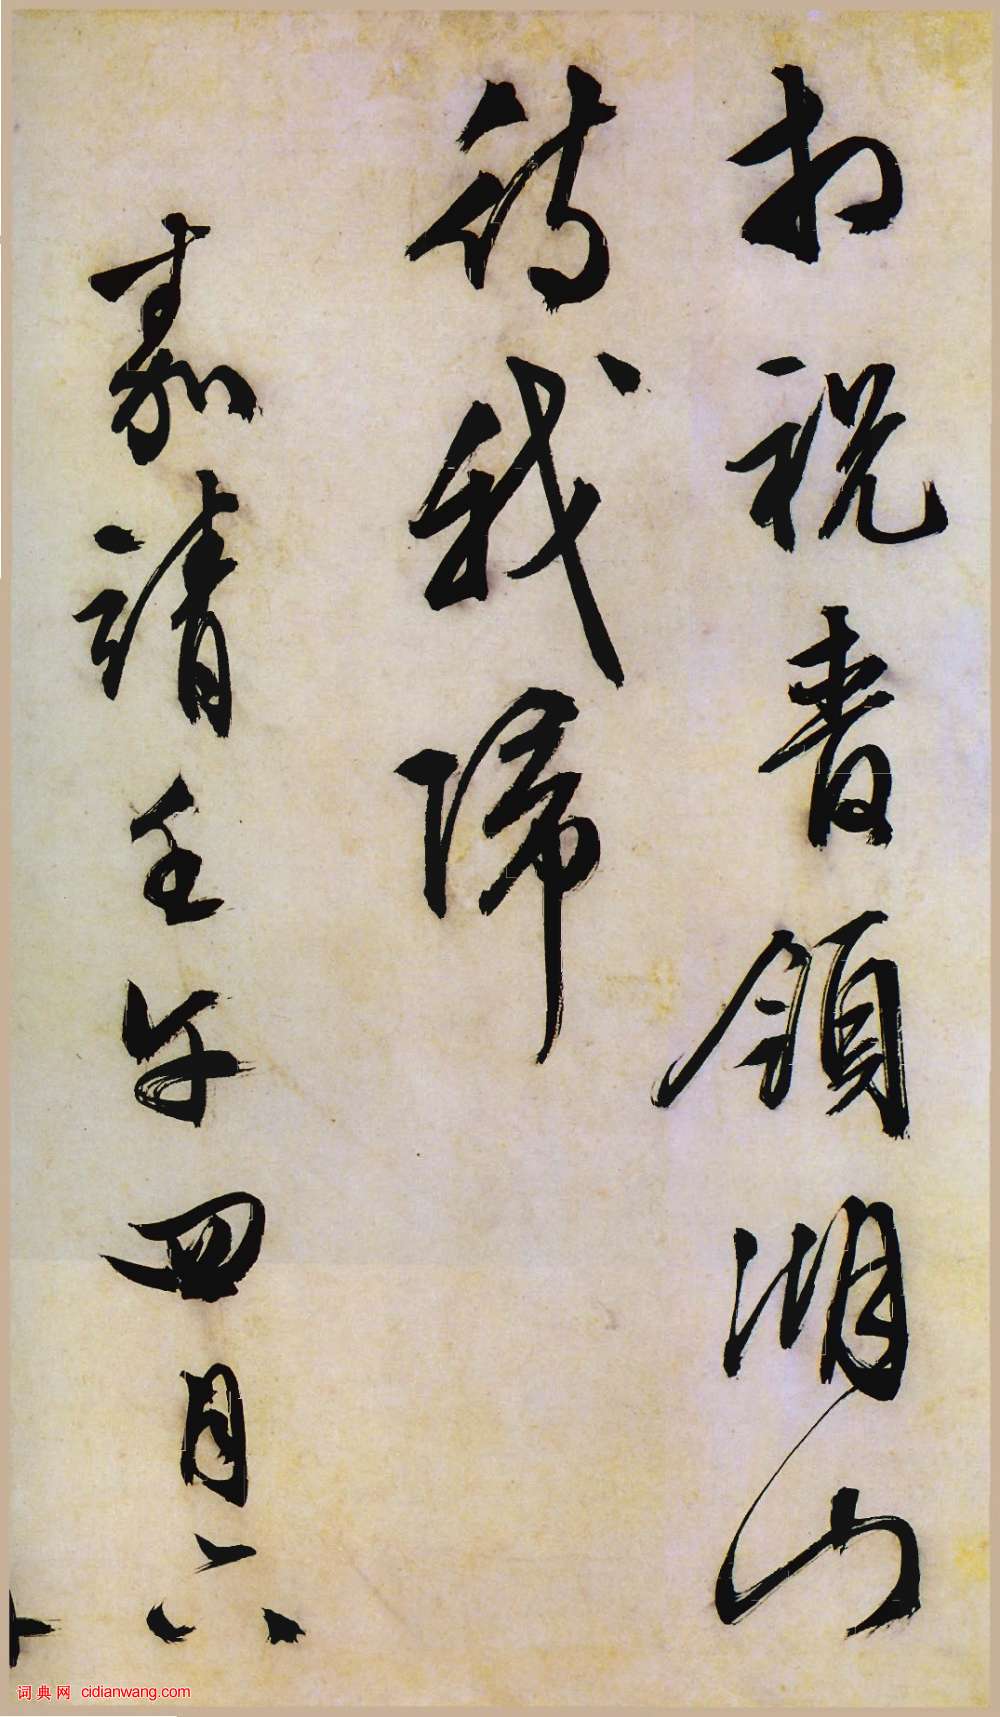 相祝春領湖山
待我歸
嘉靖壬午四月六
词典网 cidianwang.com